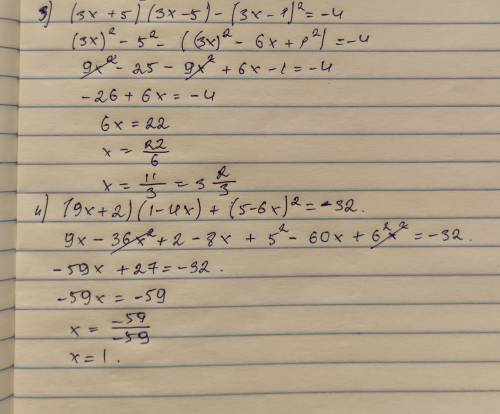 3) (3x+5)(3x-5)-(3x-1)²=-4
(3x)²-5²-((3x)²-6x+1²)=-4
9x²-25-9x²+6x-1=-4
-26+6x=-4
6x=22
x=22/6
x=11/3=3 2/3
4) (9x+2)(1-4x)+(5-6x)²=-32.
9x-36x²+2-8x+5²-60x+6²x²=-32.
-59x+27=-32.
-59x=-59
x=-59/-59
x=1.